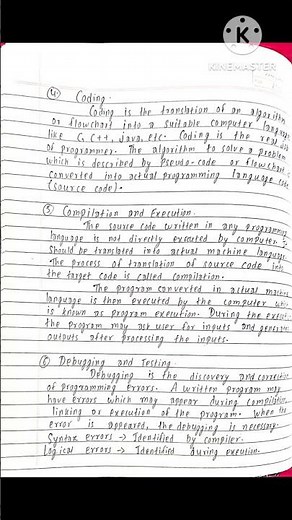 K
Made with
KINEMASTER
④ Coding
Coding is the translation of an algorithm
or flowchart into a suitable computer language
like C, C++, Java, etc. Coding is the real job
of programmer. The algorithm to solve a problem
which is described by pseudo-code or flowchart is
converted into actual programming language code
(source code).
⑤ Compilation and Execution
The source code written in any programming
language is not directly executed by computer. It
should be translated into actual machine language.
The process of translation of source code into
the target code is called compilation.
The program converted in actual machine
language is then executed by the computer which
is known as program execution. During the execution
the program may ask user for inputs and generates
outputs after processing the inputs.
⑥ Debugging and Testing
Debugging is the discovery and correction
of programming errors. A written program may
have errors which may appear during compilation,
linking or execution of the program. When the
error is appeared, the debugging is necessary.
Syntax errors → Identified by compiler.
Logical errors → Identified during execution.